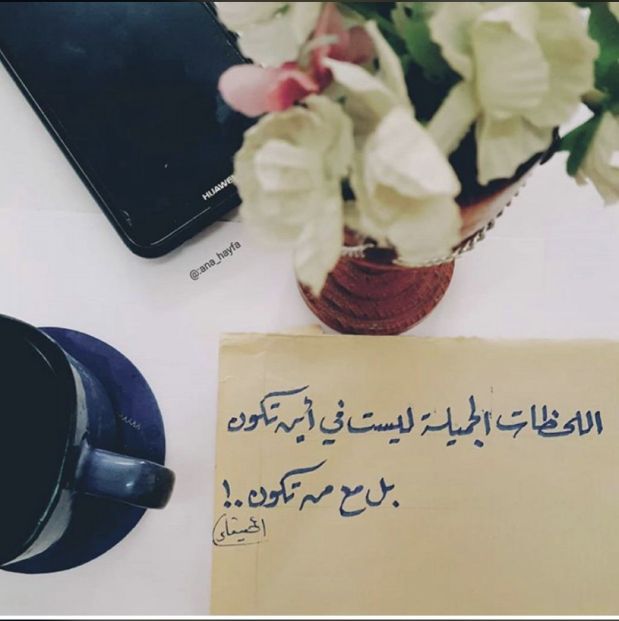 HUAWEI
@:ana_hayfa
اللحظات الجميلة ليست في أين تكون
بل مع من تكون..!
الهيفاء